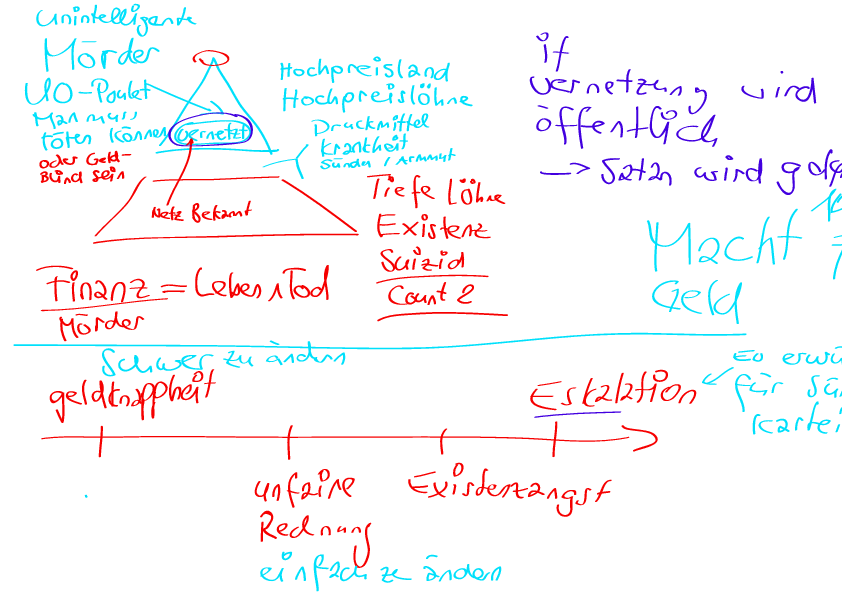 unintelligente
Mörder
UO-Punkt
Man muss
töten können
oder Geld-
Blind sein
vernetzt
Netz Bekannt
Hochpreisland
Hochpreislöhne
Druckmittel
Krankheit
Sünden / Armmut
Tiefe Löhne
Existenz
Suizid
Count 2
if
vernetzung wird
öffentlich
→ Satan wird
Macht
Geld
Finanz = Leben, Tod
Mörder
Schwer zu ändern
geldknappheit
Eskalation
für
unfaire
Rechnung
einfach zu ändern
Existenzangst